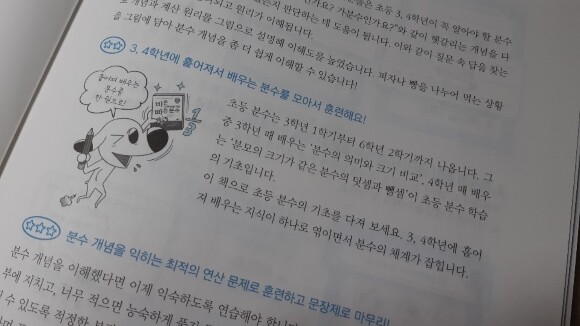 (!가요? 가분수인가요?"와 같이 헷갈리는 개념을 다
로 개념과 계산 원리를 그림으로 설명해 이해도를 높였습니다. 피자나 빵을 나누어 먹는 상황
을 그림에 담아 분수 개념을 좀 더 쉽게 이해할 수 있습니다!
3, 4학년에 흩어져서 배우는 분수를 모아서 훈련해요!
흩어져 배우는
분수를
한 권으로!
바쁜
빠른분수
1/3
초등 분수는 3학년 1학기부터 6학년 2학기까지 나옵니다. 그
중 3학년 때 배우는 '분수의 의미와 크기 비교', 4학년 때 배우
는 '분모의 크기가 같은 분수의 덧셈과 뺄셈'이 초등 분수 학습
의 기초입니다.
이 책으로 초등 분수의 기초를 다져 보세요. 3, 4학년에 흩어
져 배우는 지식이 하나로 엮이면서 분수의 체계가 잡힙니다.
분수 개념을 익히는 최적의 연산 문제로 훈련하고 문장제로 마무리!
분수 개념을 이해했다면 이제 익숙하도록 연습해야 합니다
부에 지치고, 너무 적으면 능숙하게 풀기
수 있도록 적정한